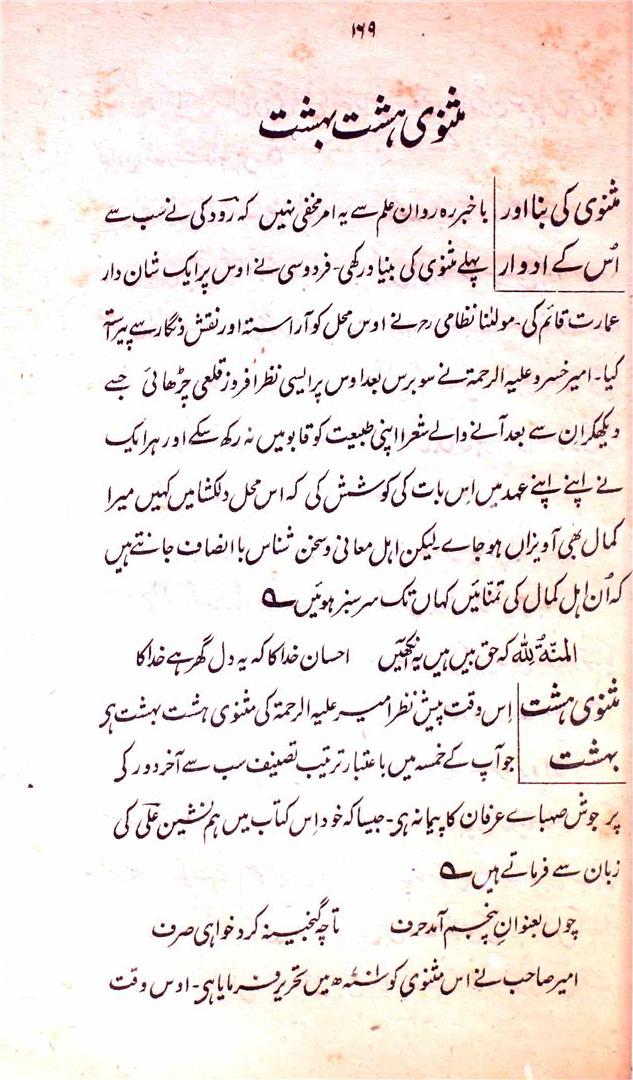 ۱۶۹
مثنوی ہشت بہشت
مثنوی کی بنا اور باخبر رہ روان علم سے یہ امر مخفی نہیں کہ رودکی نے سب سے
اُس کے ادوار پہلے مثنوی کی بنیاد رکھی۔ فردوسی نے اوس پر ایک شان دار
عمارت قائم کی۔ مولٰنا نظامی رح نے اوس محل کو آراستہ اور نقش و نگار سے پیراستہ
کیا۔ امیر خسرو علیہ الرحمۃ نے سو برس بعد اوس پر ایسی نظر افروز قلعی چڑھائی جسے
دیکھکر ان سے بعد آنے والے شعرا اپنی طبیعت کو قابو میں نہ رکھ سکے اور ہر ایک
نے اپنے اپنے عہد میں اِس بات کی کوشش کی کہ اس محل دلکشا میں کہیں میرا
کمال بھی آویزاں ہو جاے لیکن اہل معانی و سخن شناس باانصاف جانتے ہیں
کہ اُن اہل کمال کی تمنائیں کہاں تک سرسبز ہوئیں ؎
المنّۃُ للہ کہ حق بیں ہیں یہ آنکھیں احسان خدا کا کہ یہ دل گھر ہے خدا کا
مثنوی ہشت اِس وقت پیش نظر امیر علیہ الرحمۃ کی مثنوی ہشت بہشت ہی
بہشت جو آپ کے خمسہ میں باعتبار ترتیب تصنیف سب سے آخر دور کی
پر جوش صہباے عرفان کا پیمانہ ہی۔ جیسا کہ خود اِس کتاب میں ہم نشین علی کی
زبان سے فرماتے ہیں ؎
چوں بعنوانِ پنجم آمد حرف تا چہ گنجینہ کرد خواہی صرف
امیر صاحب نے اس مثنوی کو میں تحریر فرمایا ہی۔ اوس وقت